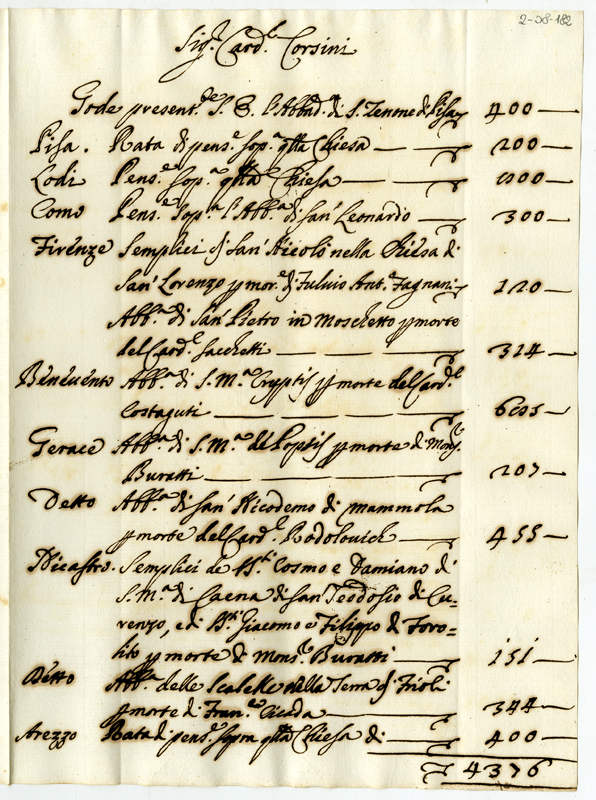 2-98-182
Sig.r Card.l Corsini
Gode present.e S. E. l'Abbad.a di S. Zenone di Pisa 400
Pisa. Rata di pens.e sop.a qlla Chiesa 200
Lodi Pens.e sop.a qlla Chiesa
Como Pens.e sop.a l'Abb.a di San Leonardo 300
Firenze Semplici di San Nicolò nella Chiesa di
San Lorenzo p mor.e di Fulvio Ant.o Fagnani 120
Abb.a di San Pietro in Moschetto p morte
del Card.l Sacchetti 314
Benevento Abb.a di S. M.a Cryptis p morte del Card.l
Costaguti
Gerace Abb.a di S. M.a de Poptis p morte di Mons.r
Buratti 207
Detto Abb.a di San Nicodemo di Mammola
p morte del Card.l Rodolovich 455
Nicastro. Semplici de S.ti Cosmo e Damiano di
S. M.a di Caena di San Teodosio di Cu-
renzo, e di S.ti Giacomo e Filippo di Foro-
lito p morte di Mons.r Buratti 151
Detto Abb.a delle Scalelle nella Terra di Frioli
p morte di Fran.co Cicada 344
Arezzo Rata di pens.e sopra qlla Chiesa di 400
4376